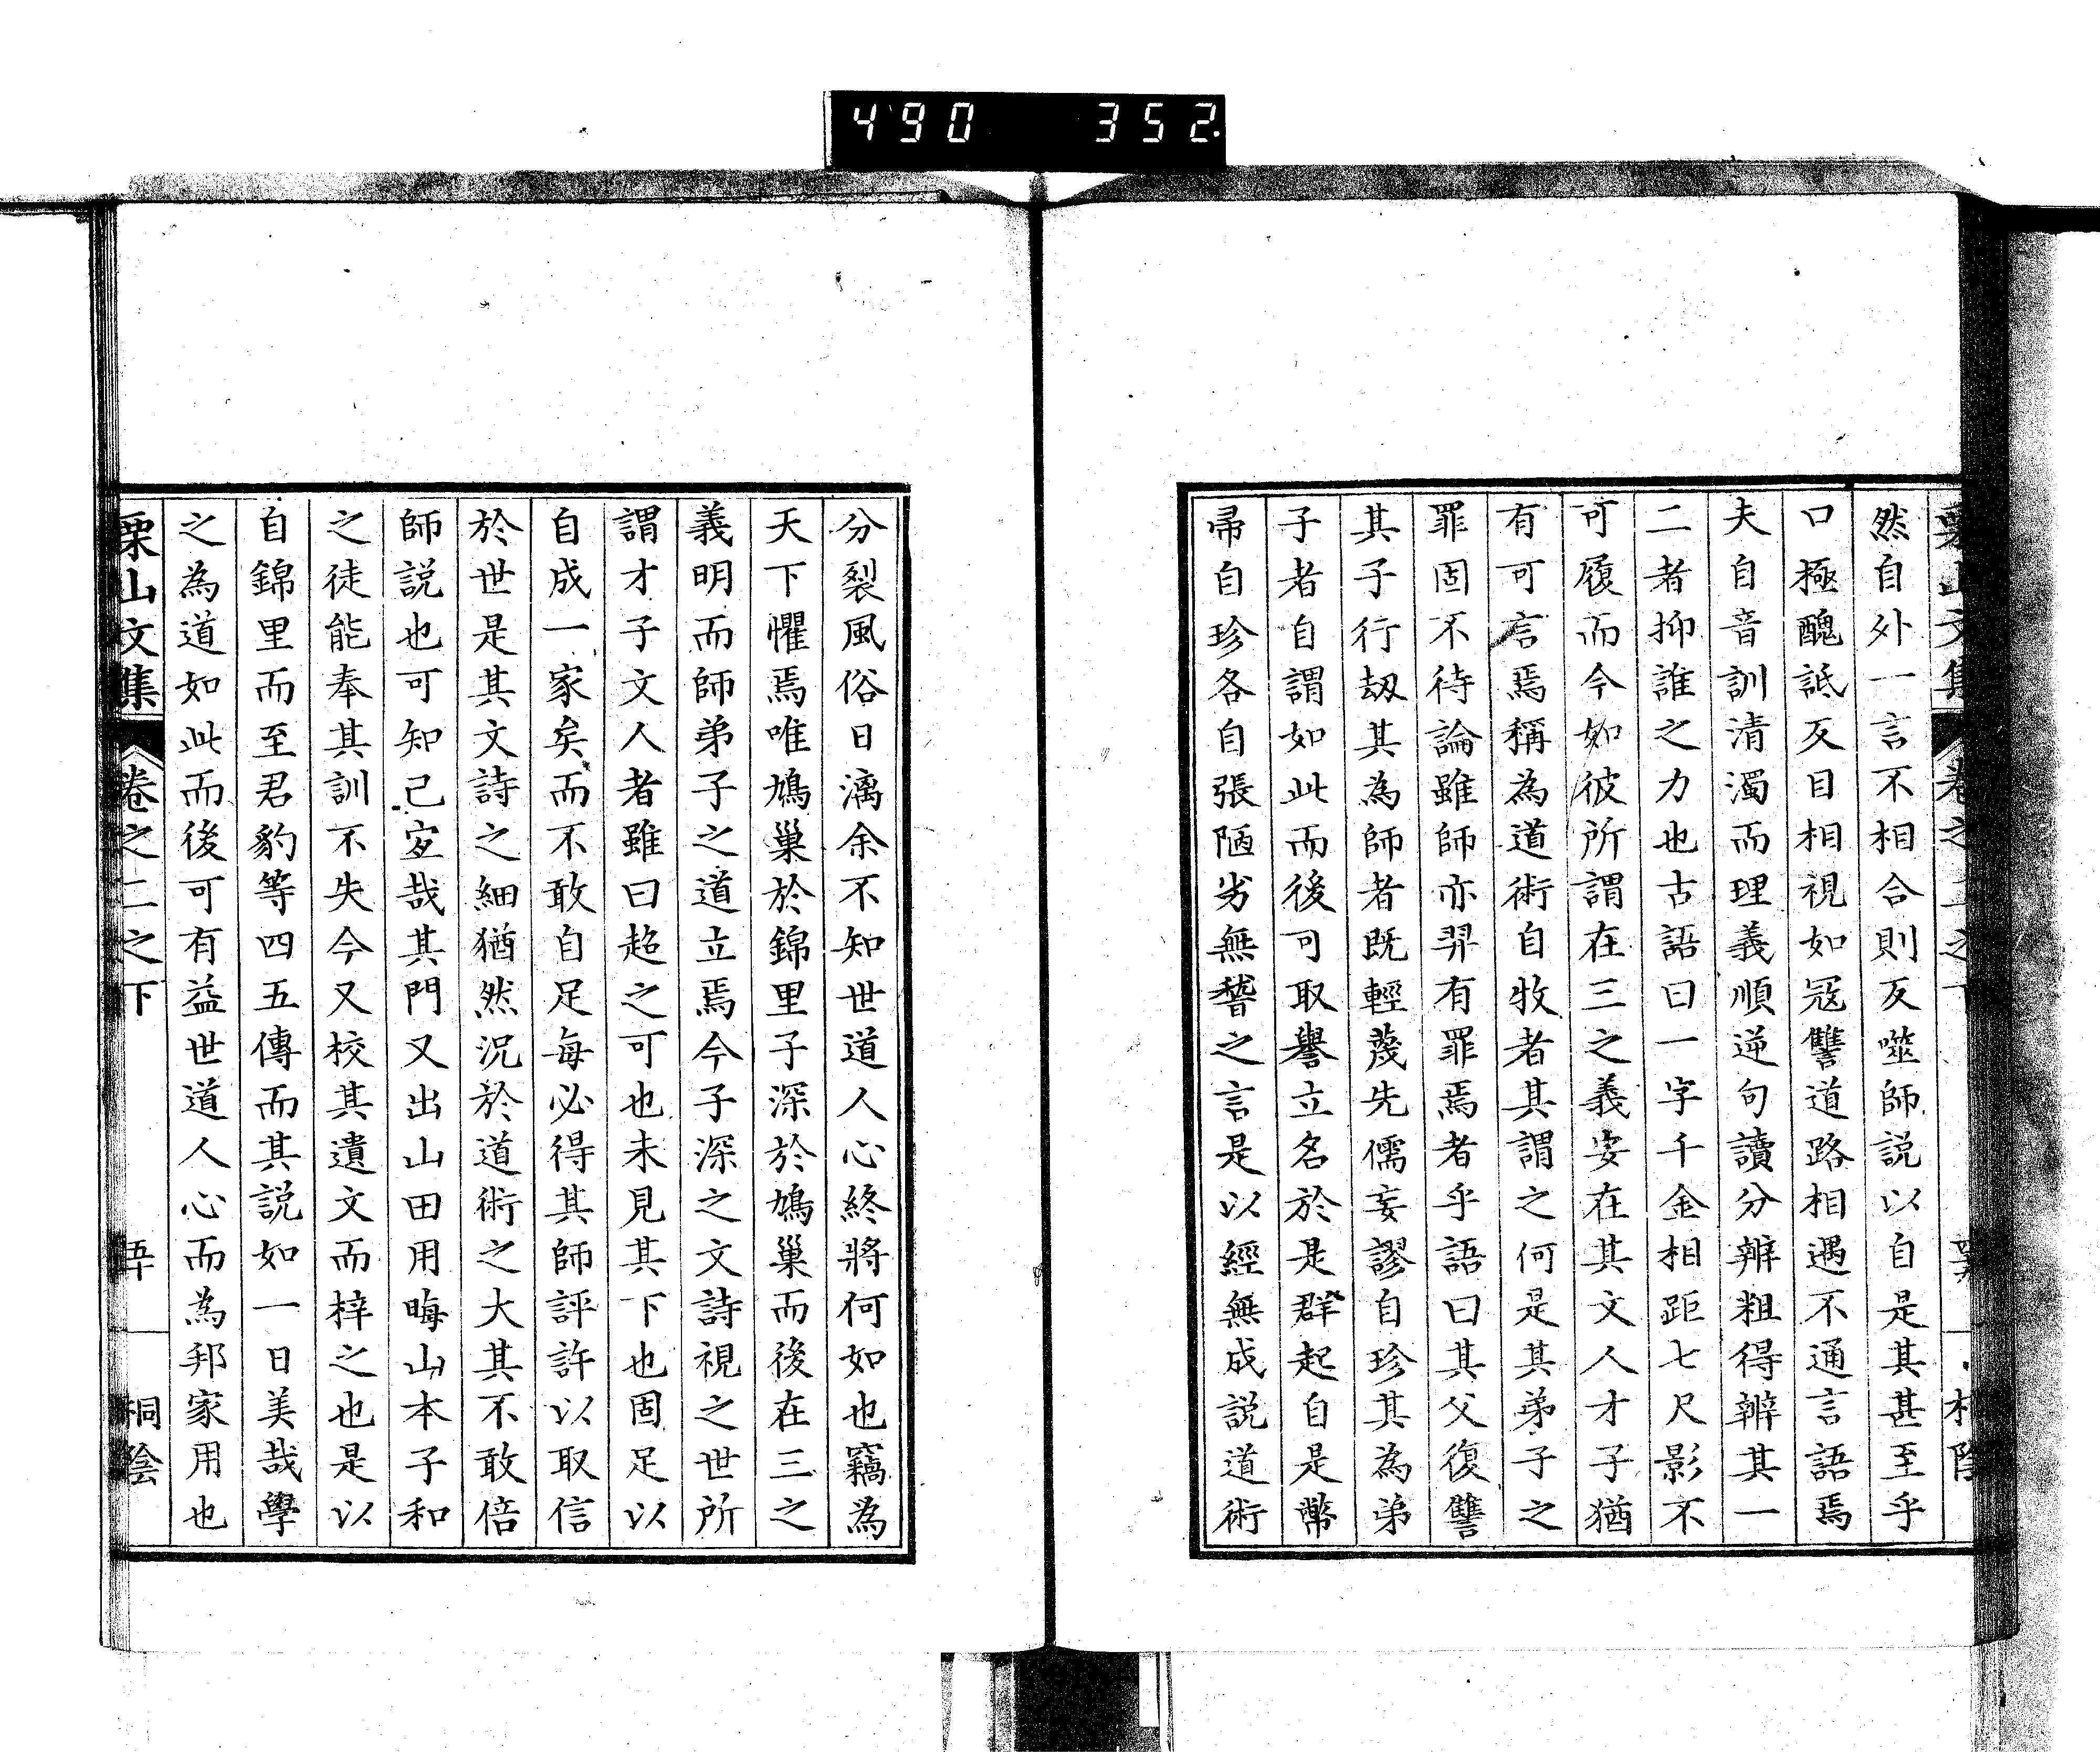 490 352
栗山文集 卷之二之下
然自外一言不相合則反噬師説以自是其甚至乎
口極醜詆反目相視如冦讐道路相遇不通言語焉
夫自音訓清濁而理義順逆句讀分辨粗得辨其一
二者抑誰之力也古語曰一字千金相距七尺影不
可履而今如彼所謂在三之義安在其文人才子猶
有可言焉稱為道術自牧者其謂之何是其弟子之
罪固不待論雖師亦羿有罪焉者乎語曰其父復讐
其子行刼其為師者既輕蔑先儒妄謬自珍其為弟
子者自謂如此而後可取譽立名於是群起自是幣
帚自珍各自張陋劣無替之言是以經無成説道術
分裂風俗日漓余不知世道人心終將何如也竊為
天下懼焉唯鳩巢於錦里子深於鳩巢而後在三之
義明而師弟子之道立焉今子深之文詩視之世所
謂才子文人者雖曰超之可也未見其下也固足以
自成一家矣而不敢自足每必得其師評許以取信
於世是其文詩之細猶然況於道術之大其不敢倍
師説也可知己㝎哉其門又出山田用晦山本子和
之徒能奉其訓不失今又校其遺文而梓之也是以
自錦里而至君豹等四五傳而其説如一日美哉學
之為道如此而後可有益世道人心而為邦家用也
栗山文集 卷之二之下 五十 桐陰